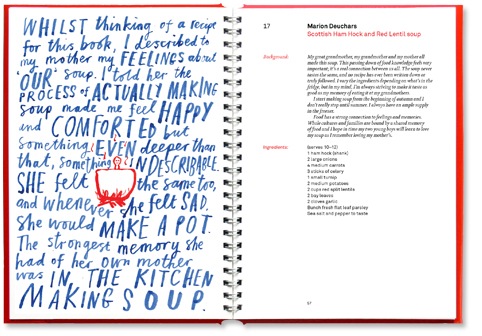 WHILST thinking of a recipe
for this book, I described to
my mother my FEELINGS about
'OUR' soup. I told her the
PROCESS of ACTUALLY MAKING
soup made me feel HAPPY
and COMFORTED but
something EVEN deeper than
that, something INDESCRIBABLE.
SHE felt the same too,
and whenever she felt SAD,
She would MAKE A POT.
The strongest memory she
had of her own mother
was IN THE KITCHEN
MAKING SOUP.
17
Marion Deuchars
Scottish Ham Hock and Red Lentil soup
Background:
My great grandmother, my grandmother and my mother all
made this soup. This passing down of food knowledge feels very
important; it's a real connection between us all. The soup never
tastes the same, and no recipe has ever been written down or
truly followed. I vary the ingredients depending on what's in the
fridge, but in my mind, I'm always striving to make it taste as
good as my memory of eating it at my grandmothers.
I start making soup from the beginning of autumn and I
don't really stop until summer. I always have an ample supply
in the freezer.
Food has a strong connection to feelings and memories.
Whole cultures and families are bound by a shared memory
of food and I hope in time my two young boys will learn to love
my soup as I remember loving my mother's.
Ingredients:
(serves 10–12)
1 ham hock (shank)
2 large onions
4 medium carrots
3 sticks of celery
1 small turnip
2 medium potatoes
2 cups red split lentils
2 bay leaves
2 cloves garlic
Bunch fresh flat leaf parsley
Sea salt and pepper to taste